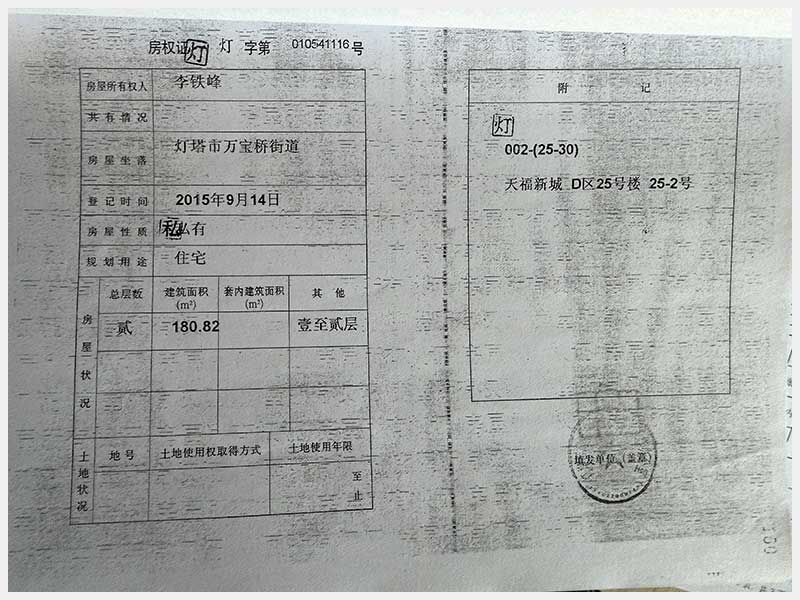 房权证 灯 灯 字第 010541116 号
房屋所有权人 李铁峰
共有情况
房屋坐落 灯塔市万宝桥街道
登记时间 2015年9月14日
房屋性质 私 私有
规划用途 住宅
房屋状况
总层数 建筑面积(m²) 套内建筑面积(m²) 其他
贰 180.82 壹至贰层
土地状况
地号 土地使用权取得方式 土地使用年限
至
止
附记
灯
002-(25-30)
天福新城 D区25号楼 25-2号
填发单位（盖章）